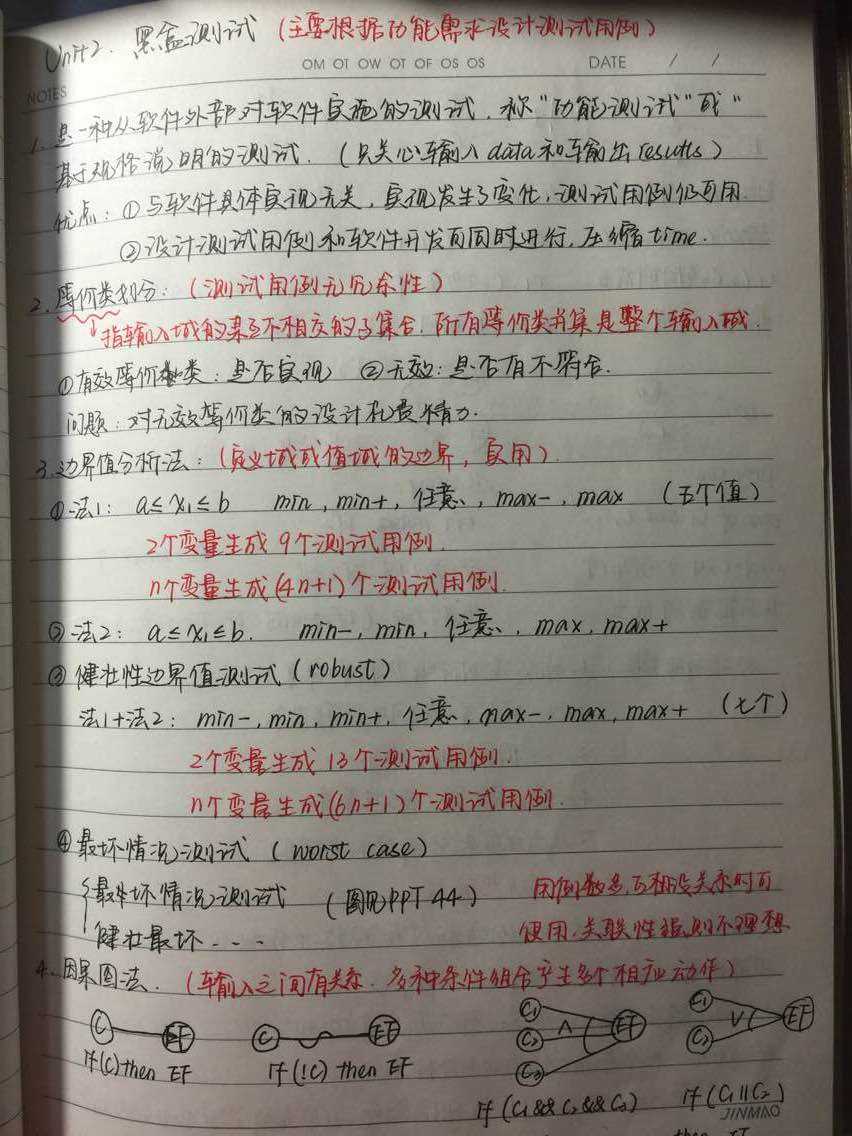 Unit 2. 黑盒测试 (主要根据功能需求设计测试用例)
OM OT OW OT OF OS OS DATE / /
NOTES
1. 是一种从软件外部对软件实施的测试. 称"功能测试"或"
基于规格说明的测试. (只关心输入data和输出results)
优点: ①与软件具体实现无关, 实现发生了变化, 测试用例仍可用
②设计测试用例和软件开发可同时进行, 压缩time.
2. 等价类划分: (测试用例无冗余性)
指输入域的某个不相交的子集合. 所有等价类并集是整个输入域.
①有效等价类: 是否实现 ②无效: 是否有不符合.
问题: 对无效等价类的设计花费精力.
3. 边界值分析法: (定义域或值域的边界, 实用)
①法1: a≤x₁≤b min, min+, 任意, max-, max (五个值)
2个变量生成9个测试用例.
n个变量生成(4n+1)个测试用例.
②法2: a≤x₁≤b. min-, min, 任意, max, max+
③健壮性边界值测试 (robust)
法1+法2: min-, min, min+, 任意, max-, max, max+ (七个)
2个变量生成13个测试用例.
n个变量生成(6n+1)个测试用例.
④最坏情况测试 (worst case)
最坏情况测试 (图见PPT 44) 用例数多, 互相没关系时可
健壮最坏... 使用, 关联性强, 则不理想
4. 因果图法. (输入之间有关系. 多种条件组合产生多个相应动作)
C EF C EF C₁ C₂ C₃ ∧ EF C₁ C₂ ∨ EF
If(C) then EF If(!C) then EF
If (C₁ && C₂ && C₃) If (C₁ || C₂)
JINMAO
then EF